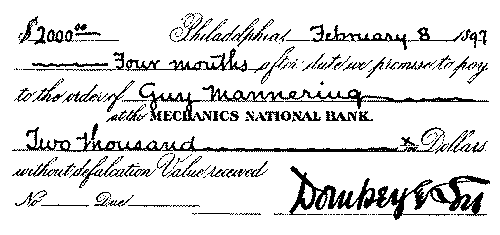 $2000.00 Philadelphia, February 8 1897
Four months after date we promise to pay
to the order of Guy Mannering
at the MECHANICS NATIONAL BANK.
Two thousand Dollars
without defalcation Value received
No Due Dombey & Son